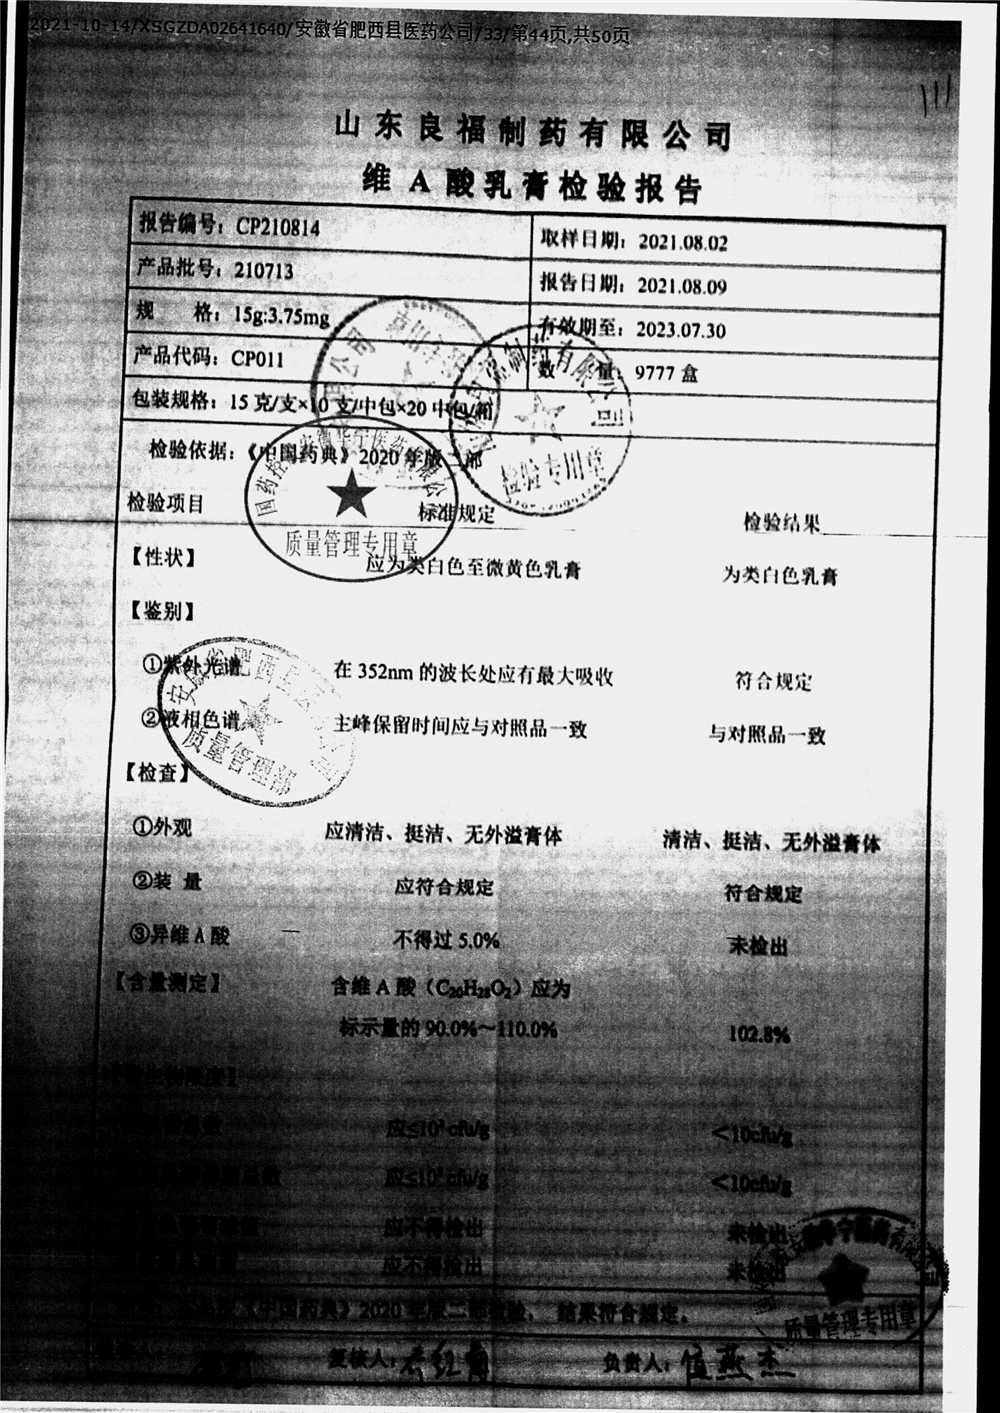 2021-10-14/XSGZDA02641640/安徽省肥西县医药公司/33/第44页,共50页
山东良福制药有限公司
维A酸乳膏检验报告
报告编号：CP210814 取样日期：2021.08.02
产品批号：210713 报告日期：2021.08.09
规 格：15g:3.75mg 有效期至：2023.07.30
产品代码：CP011 数 量：9777盒
包装规格：15克/支×10支/中包×20中包/箱
检验依据：《中国药典》2020年版二部
检验项目 标准规定 检验结果
【性状】 应为类白色至微黄色乳膏 为类白色乳膏
【鉴别】
①紫外光谱 在352nm的波长处应有最大吸收 符合规定
②液相色谱 主峰保留时间应与对照品一致 与对照品一致
【检查】
①外观 应清洁、挺洁、无外溢膏体 清洁、挺洁、无外溢膏体
②装 量 应符合规定 符合规定
③异维A酸 不得过5.0% 未检出
【含量测定】 含维A酸（C20H28O2）应为
标示量的90.0%～110.0% 102.8%
应≤10 cfu/g ＜10cfu/g
总数 应≤10 cfu/g ＜10cfu/g
应不得检出 未检出
应不得检出 未检出
《中国药典》2020年版二部检验，结果符合规定。
复核人： 负责人：
检验专用章
质量管理专用章
质量管理部
质量管理专用章